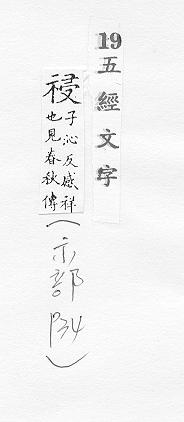 19五經文字
祲子沁反感祥
也見春秋傳
(示部
P34)